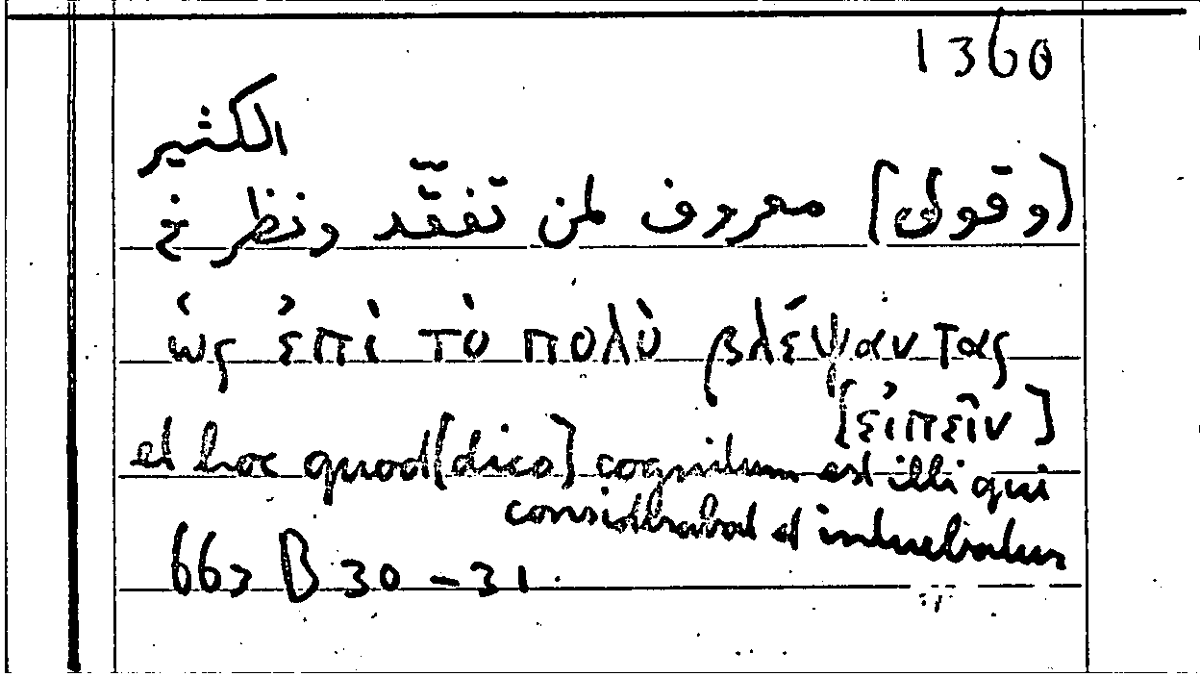 1360
الكثير
(وقولى] معروف لمن تفقّد ونظر في
ὡς ἐπὶ τὸ πολὺ βλέψαντας
[εἰπεῖν]
et hoc quod [dico] cognitum est illi qui
considerabat et intuebatur
663 B 30-31.